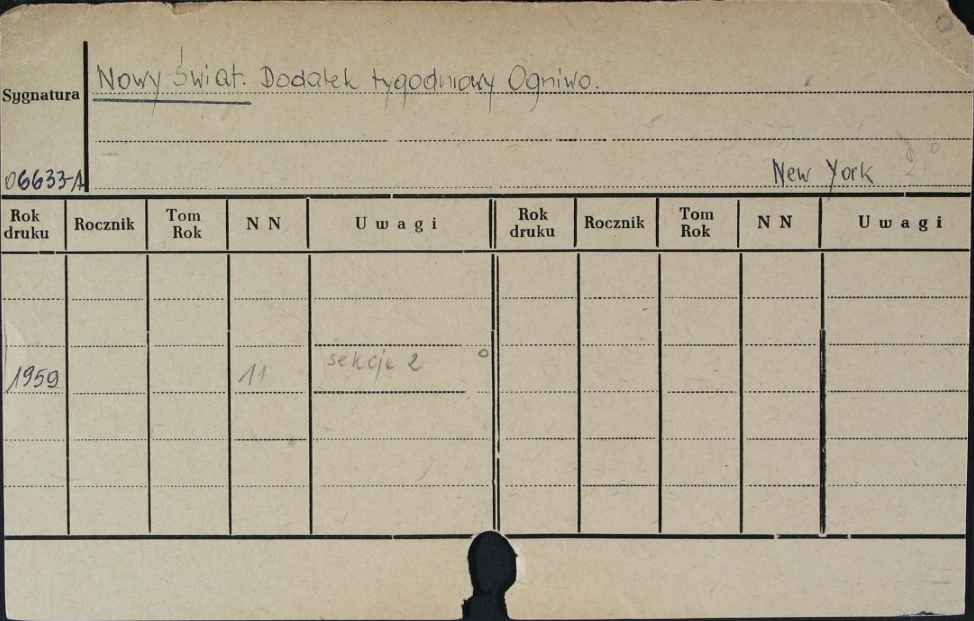 Nowy Świat. Dodatek tygodniowy Ogniwo.
Sygnatura
06633-A
New York
Rok druku Rocznik Tom Rok N N Uwagi Rok druku Rocznik Tom Rok N N Uwagi
1959 11 sekcja 2